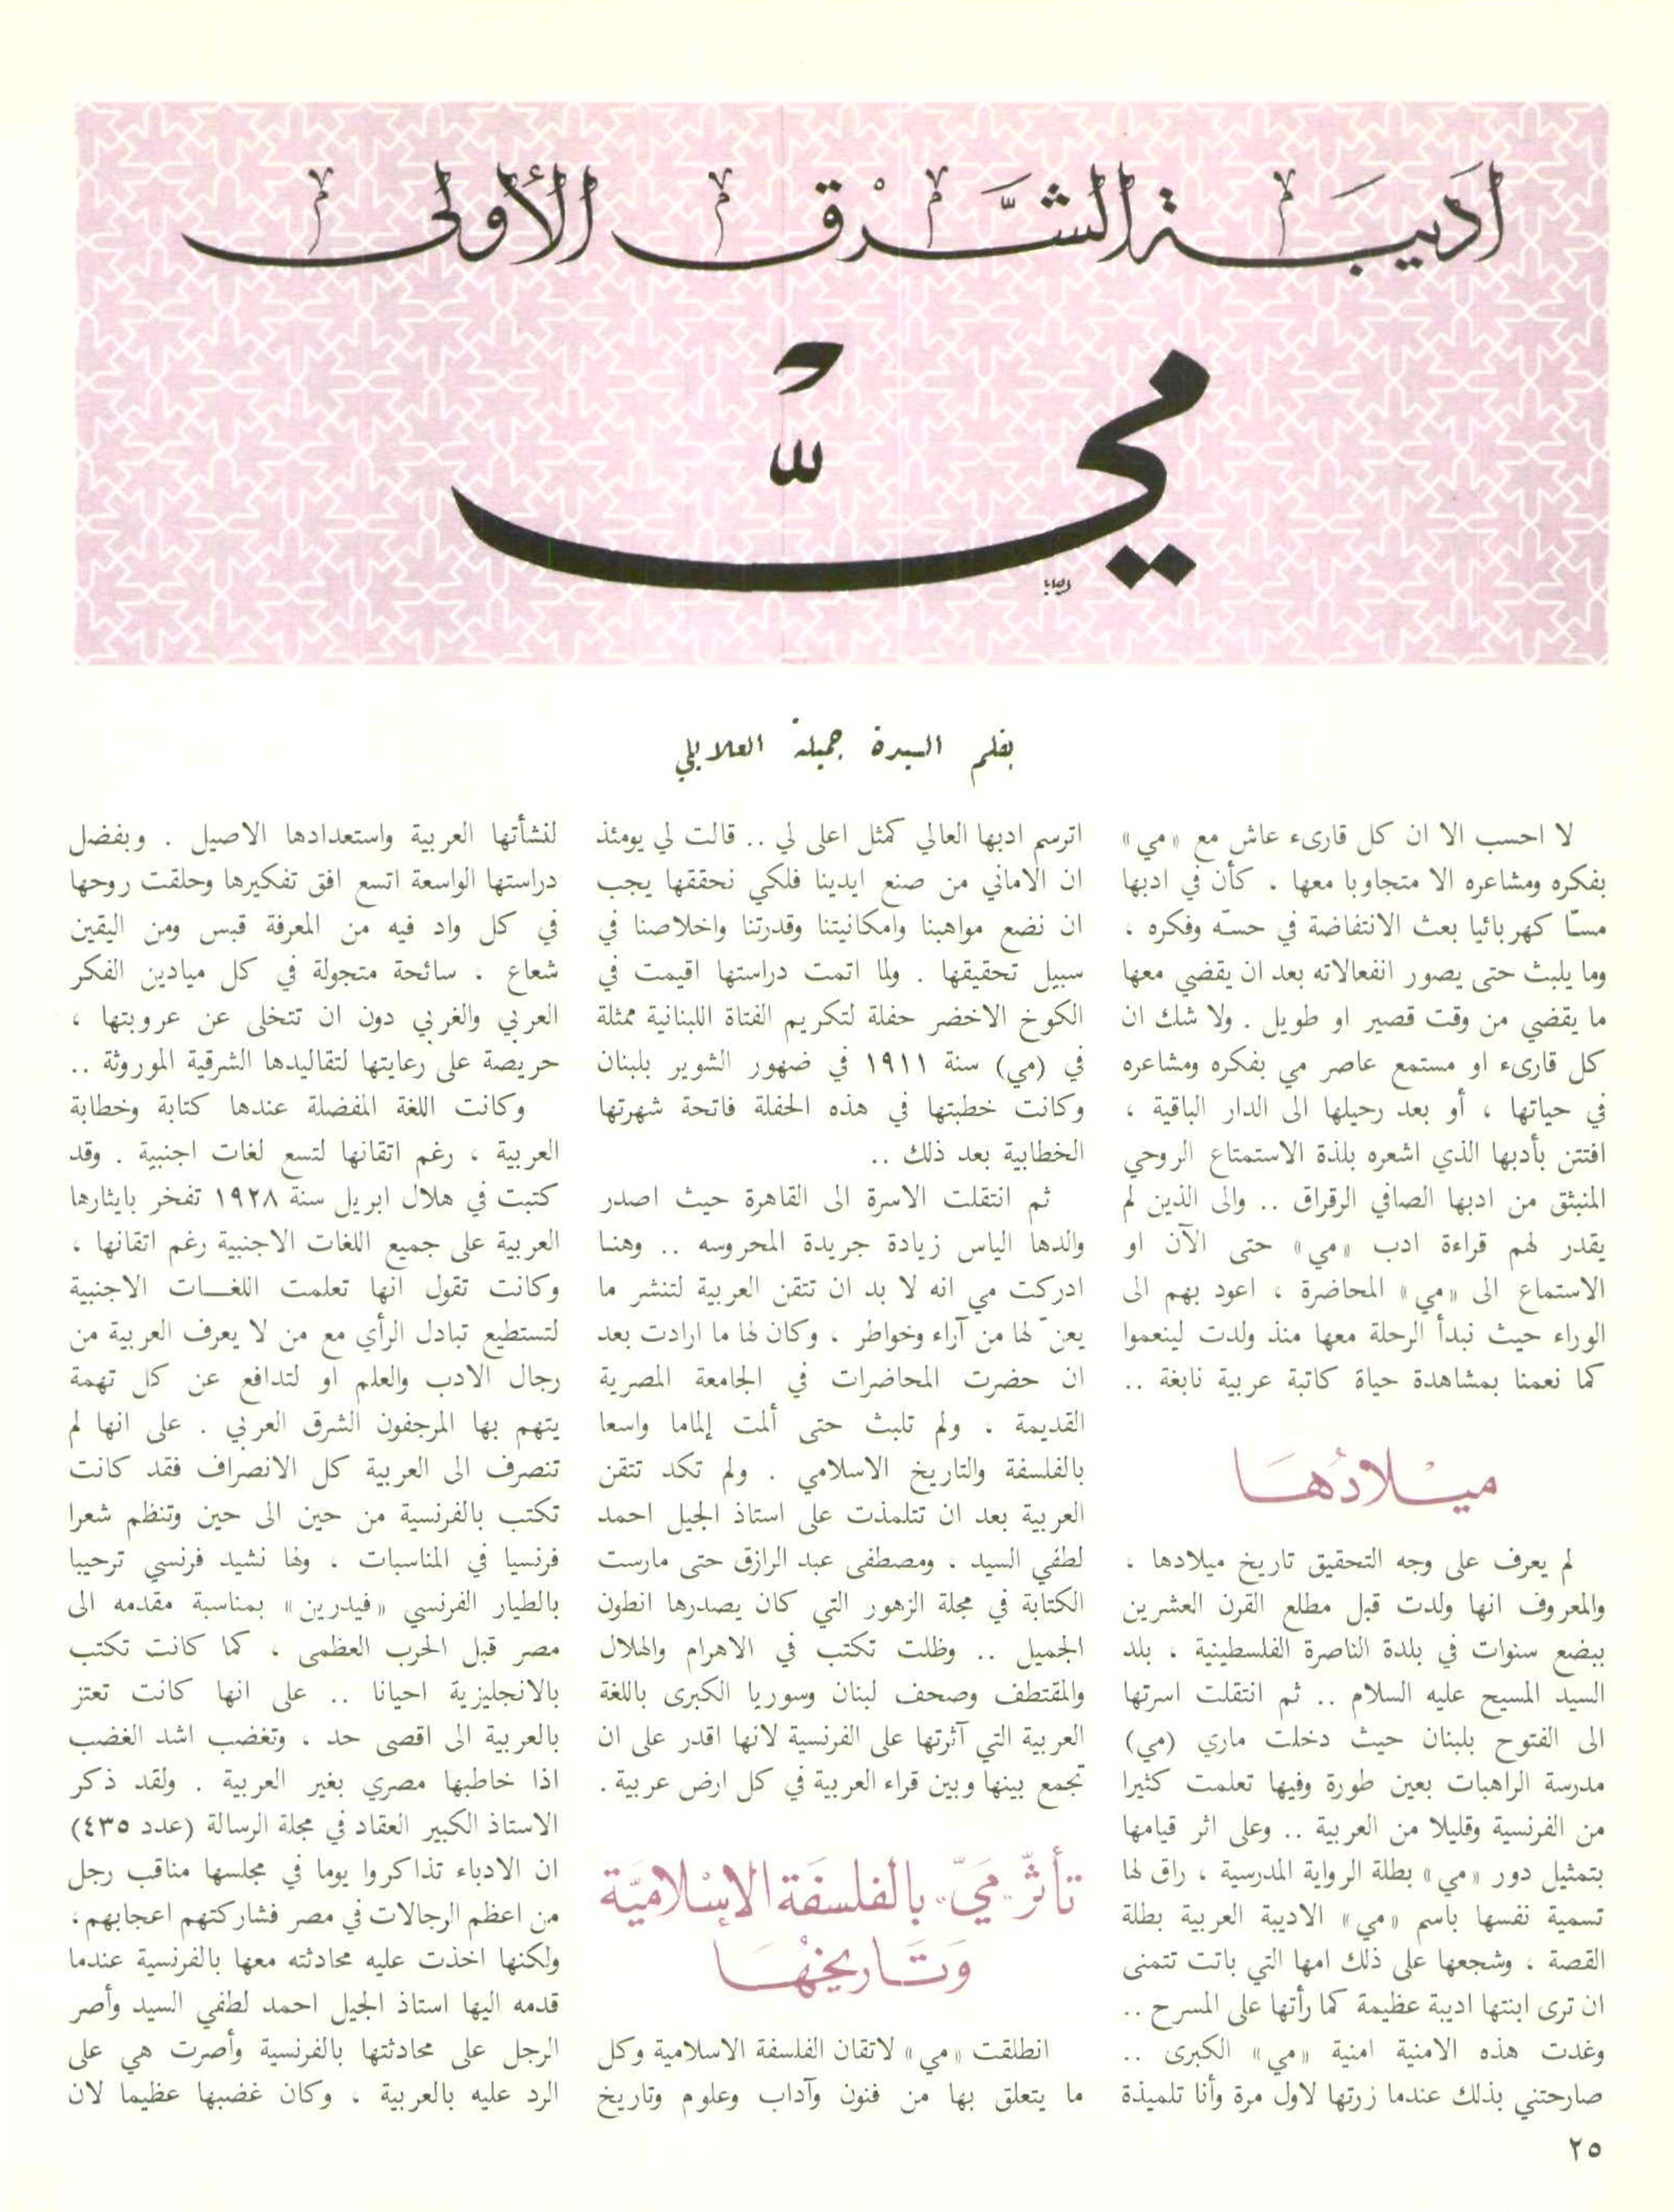 اديبة الشرق الأولى
مي
بقلم السيدة جميلة العلايلي
لا احسب الا ان كل قارىء عاش مع «مي»
بفكره ومشاعره الا متجاوبا معها ، كأن في ادبها
مسّا كهربائيا بعث الانتفاضة في حسّه وفكره ،
وما يلبث حتى يصور انفعالاته بعد ان يقضي معها
ما يقضي من وقت قصير او طويل . ولا شك ان
كل قارىء او مستمع عاصر مي بفكره ومشاعره
في حياتها ، أو بعد رحيلها الى الدار الباقية ،
افتتن بأدبها الذي اشعره بلذة الاستمتاع الروحي
المنبثق من ادبها الصافي الرقراق .. والى الذين لم
يقدر لهم قراءة ادب «مي» حتى الآن او
الاستماع الى «مي» المحاضرة ، اعود بهم الى
الوراء حيث نبدأ الرحلة معها منذ ولدت لينعموا
كما نعمنا بمشاهدة حياة كاتبة عربية نابغة ..
ميلادها
لم يعرف على وجه التحقيق تاريخ ميلادها ،
والمعروف انها ولدت قبل مطلع القرن العشرين
ببضع سنوات في بلدة الناصرة الفلسطينية ، بلد
السيد المسيح عليه السلام .. ثم انتقلت اسرتها
الى الفتوح بلبنان حيث دخلت ماري (مي)
مدرسة الراهبات بعين طورة وفيها تعلمت كثيرا
من الفرنسية وقليلا من العربية .. وعلى اثر قيامها
بتمثيل دور «مي» بطلة الرواية المدرسية ، راق لها
تسمية نفسها باسم «مي» الاديبة العربية بطلة
القصة ، وشجعها على ذلك امها التي باتت تتمنى
ان ترى ابنتها اديبة عظيمة كما رأتها على المسرح ..
وغدت هذه الامنية امنية «مي» الكبرى ..
صارحتني بذلك عندما زرتها لاول مرة وأنا تلميذة
اترسم ادبها العالي كمثل اعلى لي .. قالت لي يومئذ
ان الاماني من صنع ايدينا فلكي نحققها يجب
ان نضع مواهبنا وامكانيتنا وقدرتنا واخلاصنا في
سبيل تحقيقها . ولما اتمت دراستها اقيمت في
الكوخ الاخضر حفلة لتكريم الفتاة اللبنانية ممثلة
في (مي) سنة ١٩١١ في ضهور الشوير بلبنان
وكانت خطبتها في هذه الحفلة فاتحة شهرتها
الخطابية بعد ذلك ..
ثم انتقلت الاسرة الى القاهرة حيث اصدر
والدها الياس زيادة جريدة المحروسه .. وهنا
ادركت مي انه لا بد ان تتقن العربية لتنشر ما
يعنّ لها من آراء وخواطر ، وكان لها ما ارادت بعد
ان حضرت المحاضرات في الجامعة المصرية
القديمة ، ولم تلبث حتى ألمت إلماما واسعا
بالفلسفة والتاريخ الاسلامي . ولم تكد تتقن
العربية بعد ان تتلمذت على استاذ الجيل احمد
لطفي السيد ، ومصطفى عبد الرازق حتى مارست
الكتابة في مجلة الزهور التي كان يصدرها انطون
الجميل .. وظلت تكتب في الاهرام والهلال
والمقتطف وصحف لبنان وسوريا الكبرى باللغة
العربية التي آثرتها على الفرنسية لانها اقدر على ان
تجمع بينها وبين قراء العربية في كل ارض عربية .
تأثّر «ميّ» بالفلسفة الاسلاميّة
وتاريخها
انطلقت «مي» لاتقان الفلسفة الاسلامية وكل
ما يتعلق بها من فنون وآداب وعلوم وتاريخ
لنشأتها العربية واستعدادها الاصيل . وبفضل
دراستها الواسعة اتسع افق تفكيرها وحلقت روحها
في كل واد فيه من المعرفة قبس ومن اليقين
شعاع ، سائحة متجولة في كل ميادين الفكر
العربي والغربي دون ان تتخلى عن عروبتها ،
حريصة على رعايتها لتقاليدها الشرقية الموروثة ..
وكانت اللغة المفضلة عندها كتابة وخطابة
العربية ، رغم اتقانها لتسع لغات اجنبية . وقد
كتبت في هلال ابريل سنة ١٩٢٨ تفخر بايثارها
العربية على جميع اللغات الاجنبية رغم اتقانها ،
وكانت تقول انها تعلمت اللغات الاجنبية
لتستطيع تبادل الرأي مع من لا يعرف العربية من
رجال الادب والعلم او لتدافع عن كل تهمة
يتهم بها المرجفون الشرق العربي . على انها لم
تنصرف الى العربية كل الانصراف فقد كانت
تكتب بالفرنسية من حين الى حين وتنظم شعرا
فرنسيا في المناسبات ، ولها نشيد فرنسي ترحيبا
بالطيار الفرنسي «فيدرين» بمناسبة مقدمه الى
مصر قبل الحرب العظمى ، كما كانت تكتب
بالانجليزية احيانا .. على انها كانت تعتز
بالعربية الى اقصى حد ، وتغضب اشد الغضب
اذا خاطبها مصري بغير العربية . ولقد ذكر
الاستاذ الكبير العقاد في مجلة الرسالة (عدد ٤٣٥)
ان الادباء تذاكروا يوما في مجلسها مناقب رجل
من اعظم الرجالات في مصر فشاركتهم اعجابهم ،
ولكنها اخذت عليه محادثته معها بالفرنسية عندما
قدمه اليها استاذ الجيل احمد لطفي السيد وأصر
الرجل على محادثتها بالفرنسية وأصرت هي على
الرد عليه بالعربية ، وكان غضبها عظيما لان
٢٥